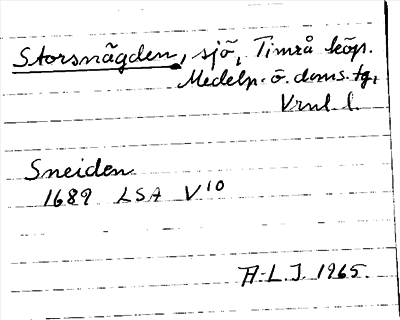 Storsnägden, sjö, Timrå köp.
Medelp. ö. doms. tg,
Vrnl l.
Sneiden
1689 LSA V10
H-L.J. 1965.